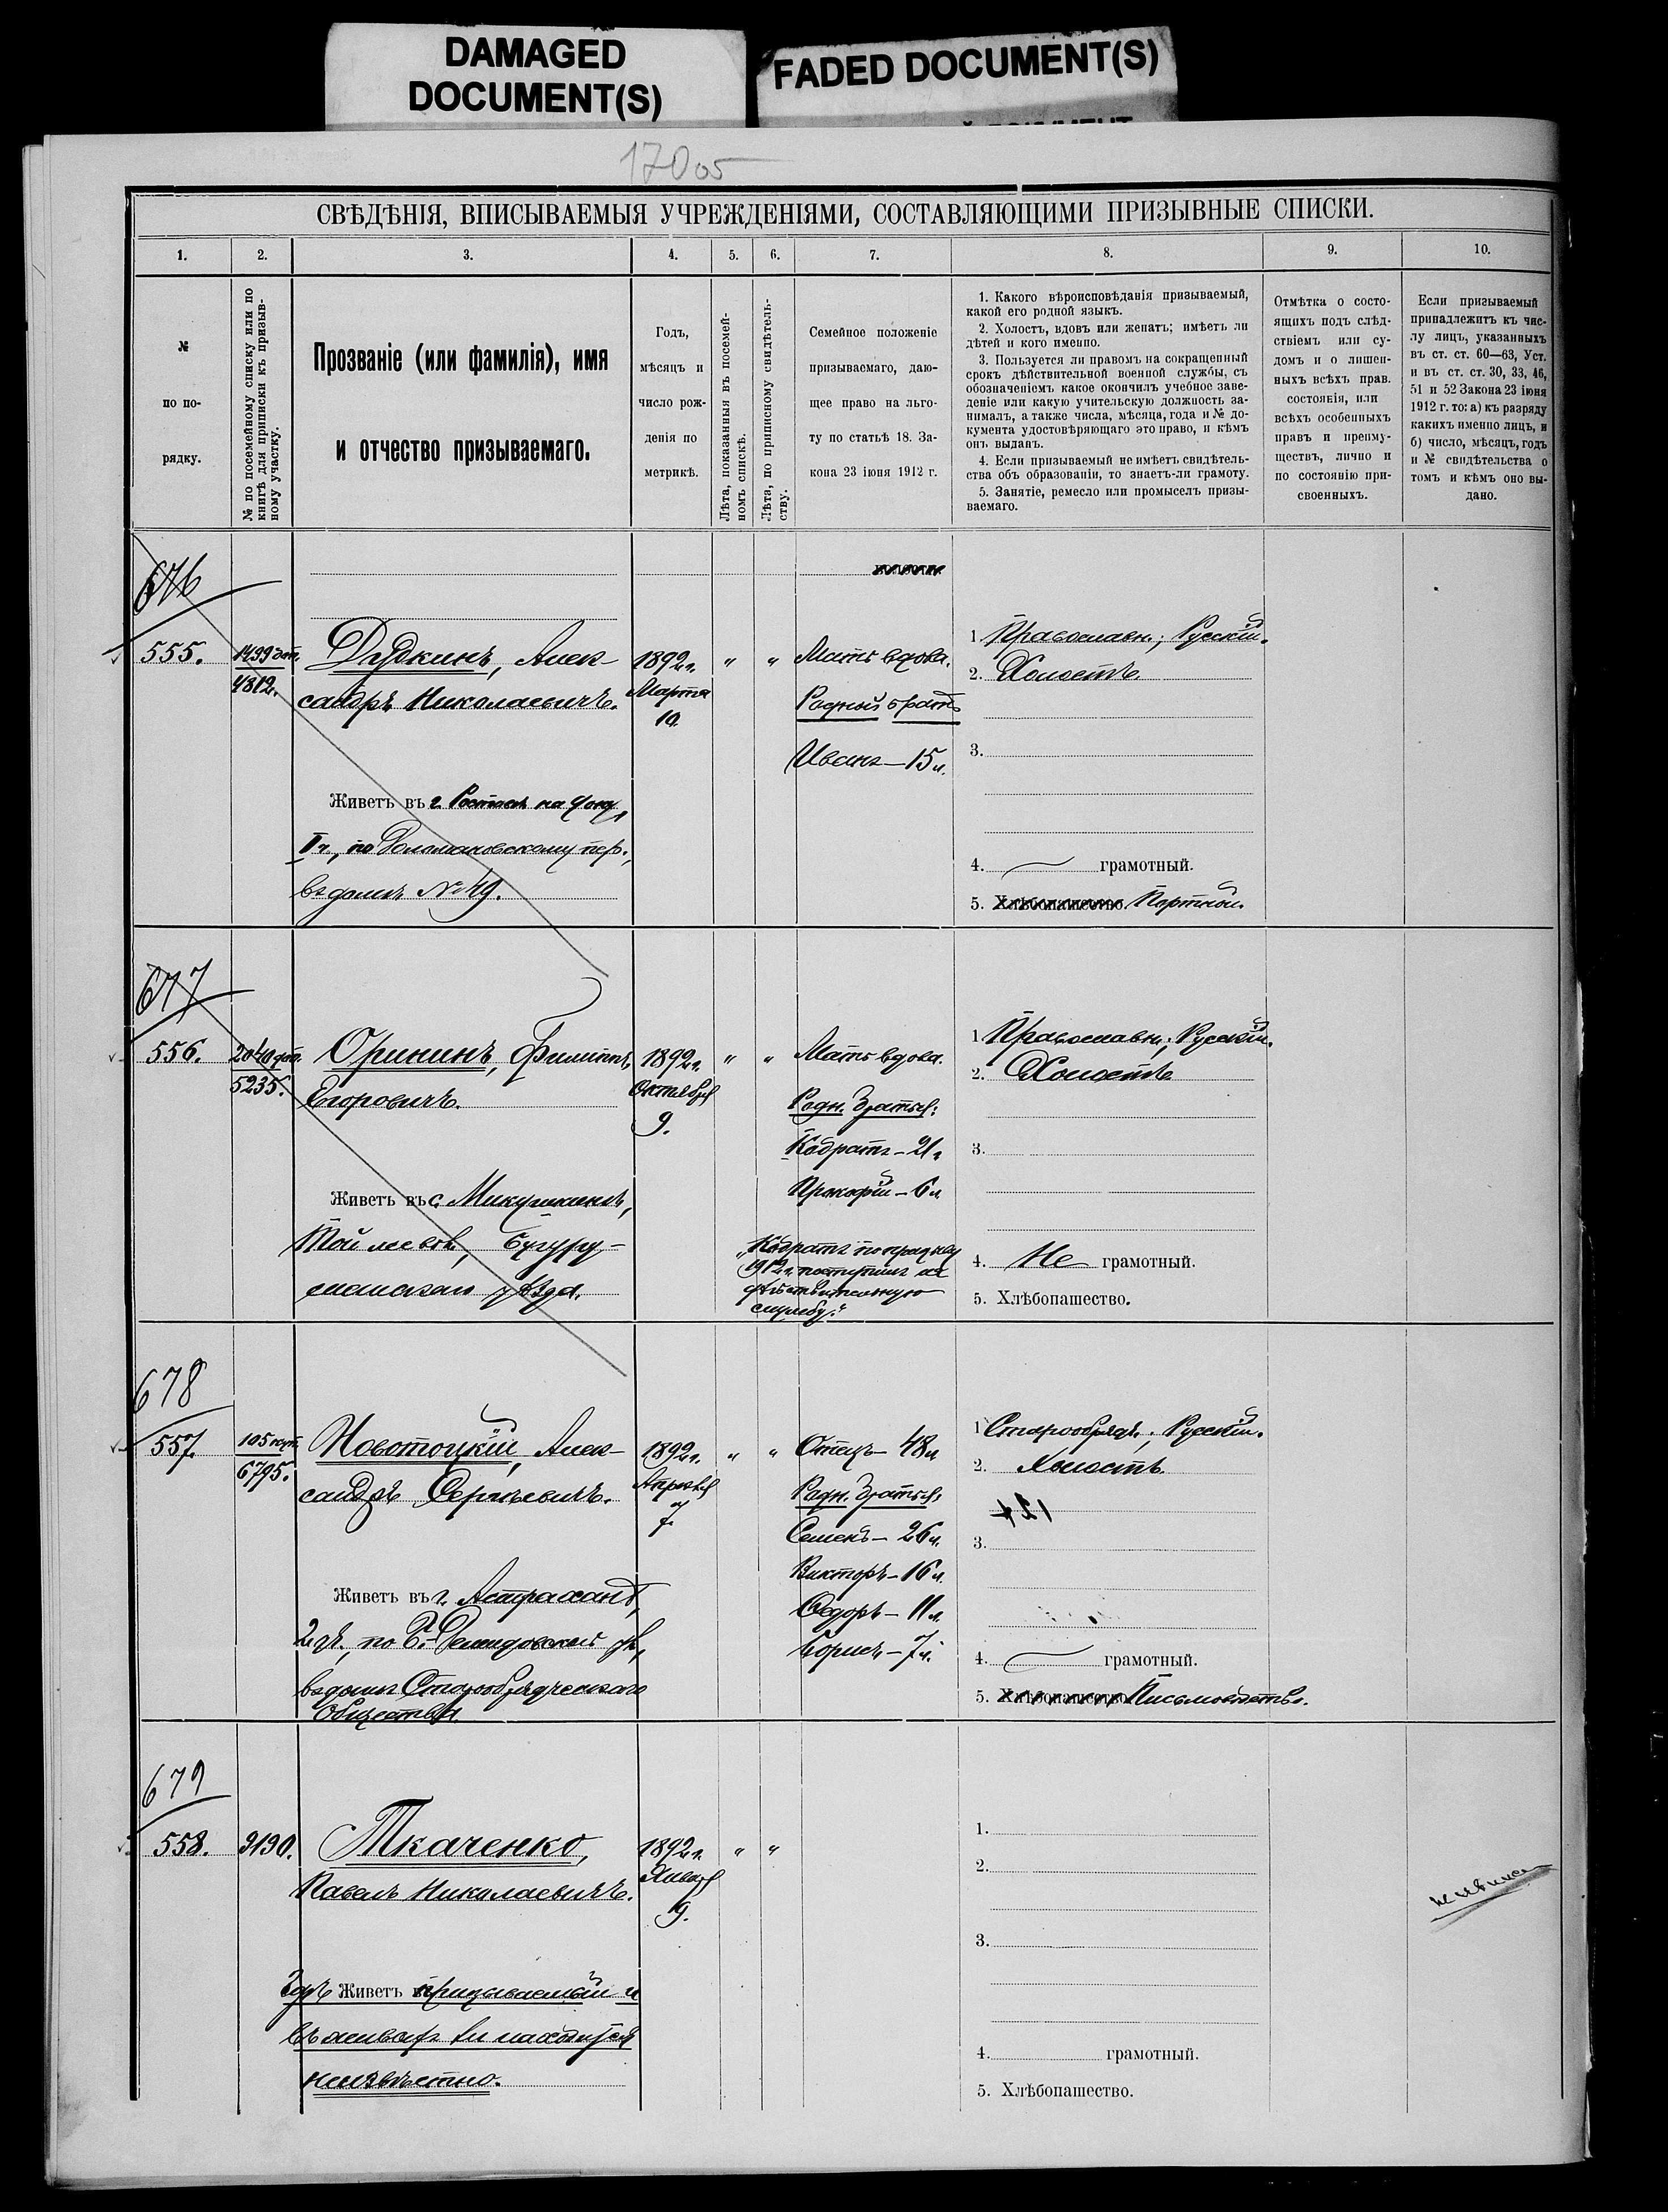 DAMAGED
DOCUMENT(S)
FADED DOCUMENT(S)
170 об
СВѢДѢНІЯ, ВПИСЫВАЕМЫЯ УЧРЕЖДЕНІЯМИ, СОСТАВЛЯЮЩИМИ ПРИЗЫВНЫЕ СПИСКИ.
1. 2. 3. 4. 5. 6. 7. 8. 9. 10.
№
по по-
рядку.
№ по посемейному списку или по
книгѣ для приписки къ призыв-
ному участку.
Прозваніе (или фамилія), имя
и отчество призываемаго.
Годъ,
мѣсяцъ и
число рож-
денія по
метрикѣ.
Лѣта, показанныя въ посемей-
номъ спискѣ.
Лѣта, по приписному свидѣтель-
ству.
Семейное положеніе
призываемаго, даю-
щее право на льго-
ту по статьѣ 18. За-
кона 23 іюня 1912 г.
1. Какого вѣроисповѣданія призываемый,
какой его родной языкъ.
2. Холостъ, вдовъ или женатъ; имѣетъ ли
дѣтей и кого именно.
3. Пользуется ли правомъ на сокращенный
срокъ дѣйствительной военной службы, съ
обозначеніемъ какое окончилъ учебное заве-
деніе или какую учительскую должность за-
нималъ, а также числа, мѣсяца, года и № до-
кумента удостовѣряющаго это право, и кѣмъ
онъ выданъ.
4. Если призываемый не имѣетъ свидѣтель-
ства объ образованіи, то знаетъ-ли грамоту.
5. Занятіе, ремесло или промыселъ призы-
ваемаго.
Отмѣтка о состо-
ящихъ подъ слѣд-
ствіемъ или су-
домъ и о лишен-
ныхъ всѣхъ прав.
состоянія, или
всѣхъ особенныхъ
правъ и преиму-
ществъ, лично и
по состоянію при-
своенныхъ.
Если призываемый
принадлежитъ къ чис-
лу лицъ, указанныхъ
въ ст. ст. 60—63, Уст.
и въ ст. ст. 30, 33, 46,
51 и 52 Закона 23 іюня
1912 г. то: а) къ разряду
какихъ именно лицъ, и
б) число, мѣсяцъ, годъ
и № свидѣтельства о
томъ и кѣмъ оно вы-
дано.
676
555.
1499
4812.
Дудкинъ, Алек-
сандръ Николаевичъ.
Живетъ въ г. Ростовѣ на Дону,
II ч., по Доломановскому пер.,
въ домѣ № 49.
1892 г.
Марта
10.
" "
Мать вдова.
Родный братъ
Иванъ — 15 л.
1. Православн.; Русскій.
2. Холостъ
3.
4. грамотный.
5. Хлѣбопашество Портной.
677
556.
2040
5235.
Оринин, Филиппъ
Егоровичъ.
Живетъ въ с. Микушкинѣ,
Той же вол., Бугуру-
сланскаго уѣзда.
1892 г.
Октября
9.
" "
Мать вдова.
Родн. братья:
Кодратъ — 21 л
Прокофій — 6 л.
„Кодратъ по призыву
1912 г. поступилъ на
дѣйствительную
службу."
1. Православн.; Русскій.
2. Холостъ
3.
4. Не грамотный.
5. Хлѣбопашество.
678
557.
105
6795.
Новотоцкій, Алек-
сандръ Сергѣевичъ.
Живетъ въ г. Астрахани,
2 уч., по Б.-Демидовской ул.,
въ домѣ Старообрядческаго
Общества.
1892 г.
Апрѣля
7.
" "
Отецъ — 48 л
Родн. братья,
Семенъ — 26 л.
Викторъ — 16 л.
Ѳедоръ — 11 л.
Борисъ — 7 л.
1. Старообряд.; Русскій.
2. Холостъ.
3.
4. грамотный.
5. Хлѣбопашество Письмоводство.
679
558.
9190.
Ткаченко,
Павелъ Николаевичъ.
Гдѣ Живетъ призываемый и
въ живыхъ ли находится
неизвѣстно.
1892 г.
Января
9.
" "
1.
2.
3.
4. грамотный.
5. Хлѣбопашество.